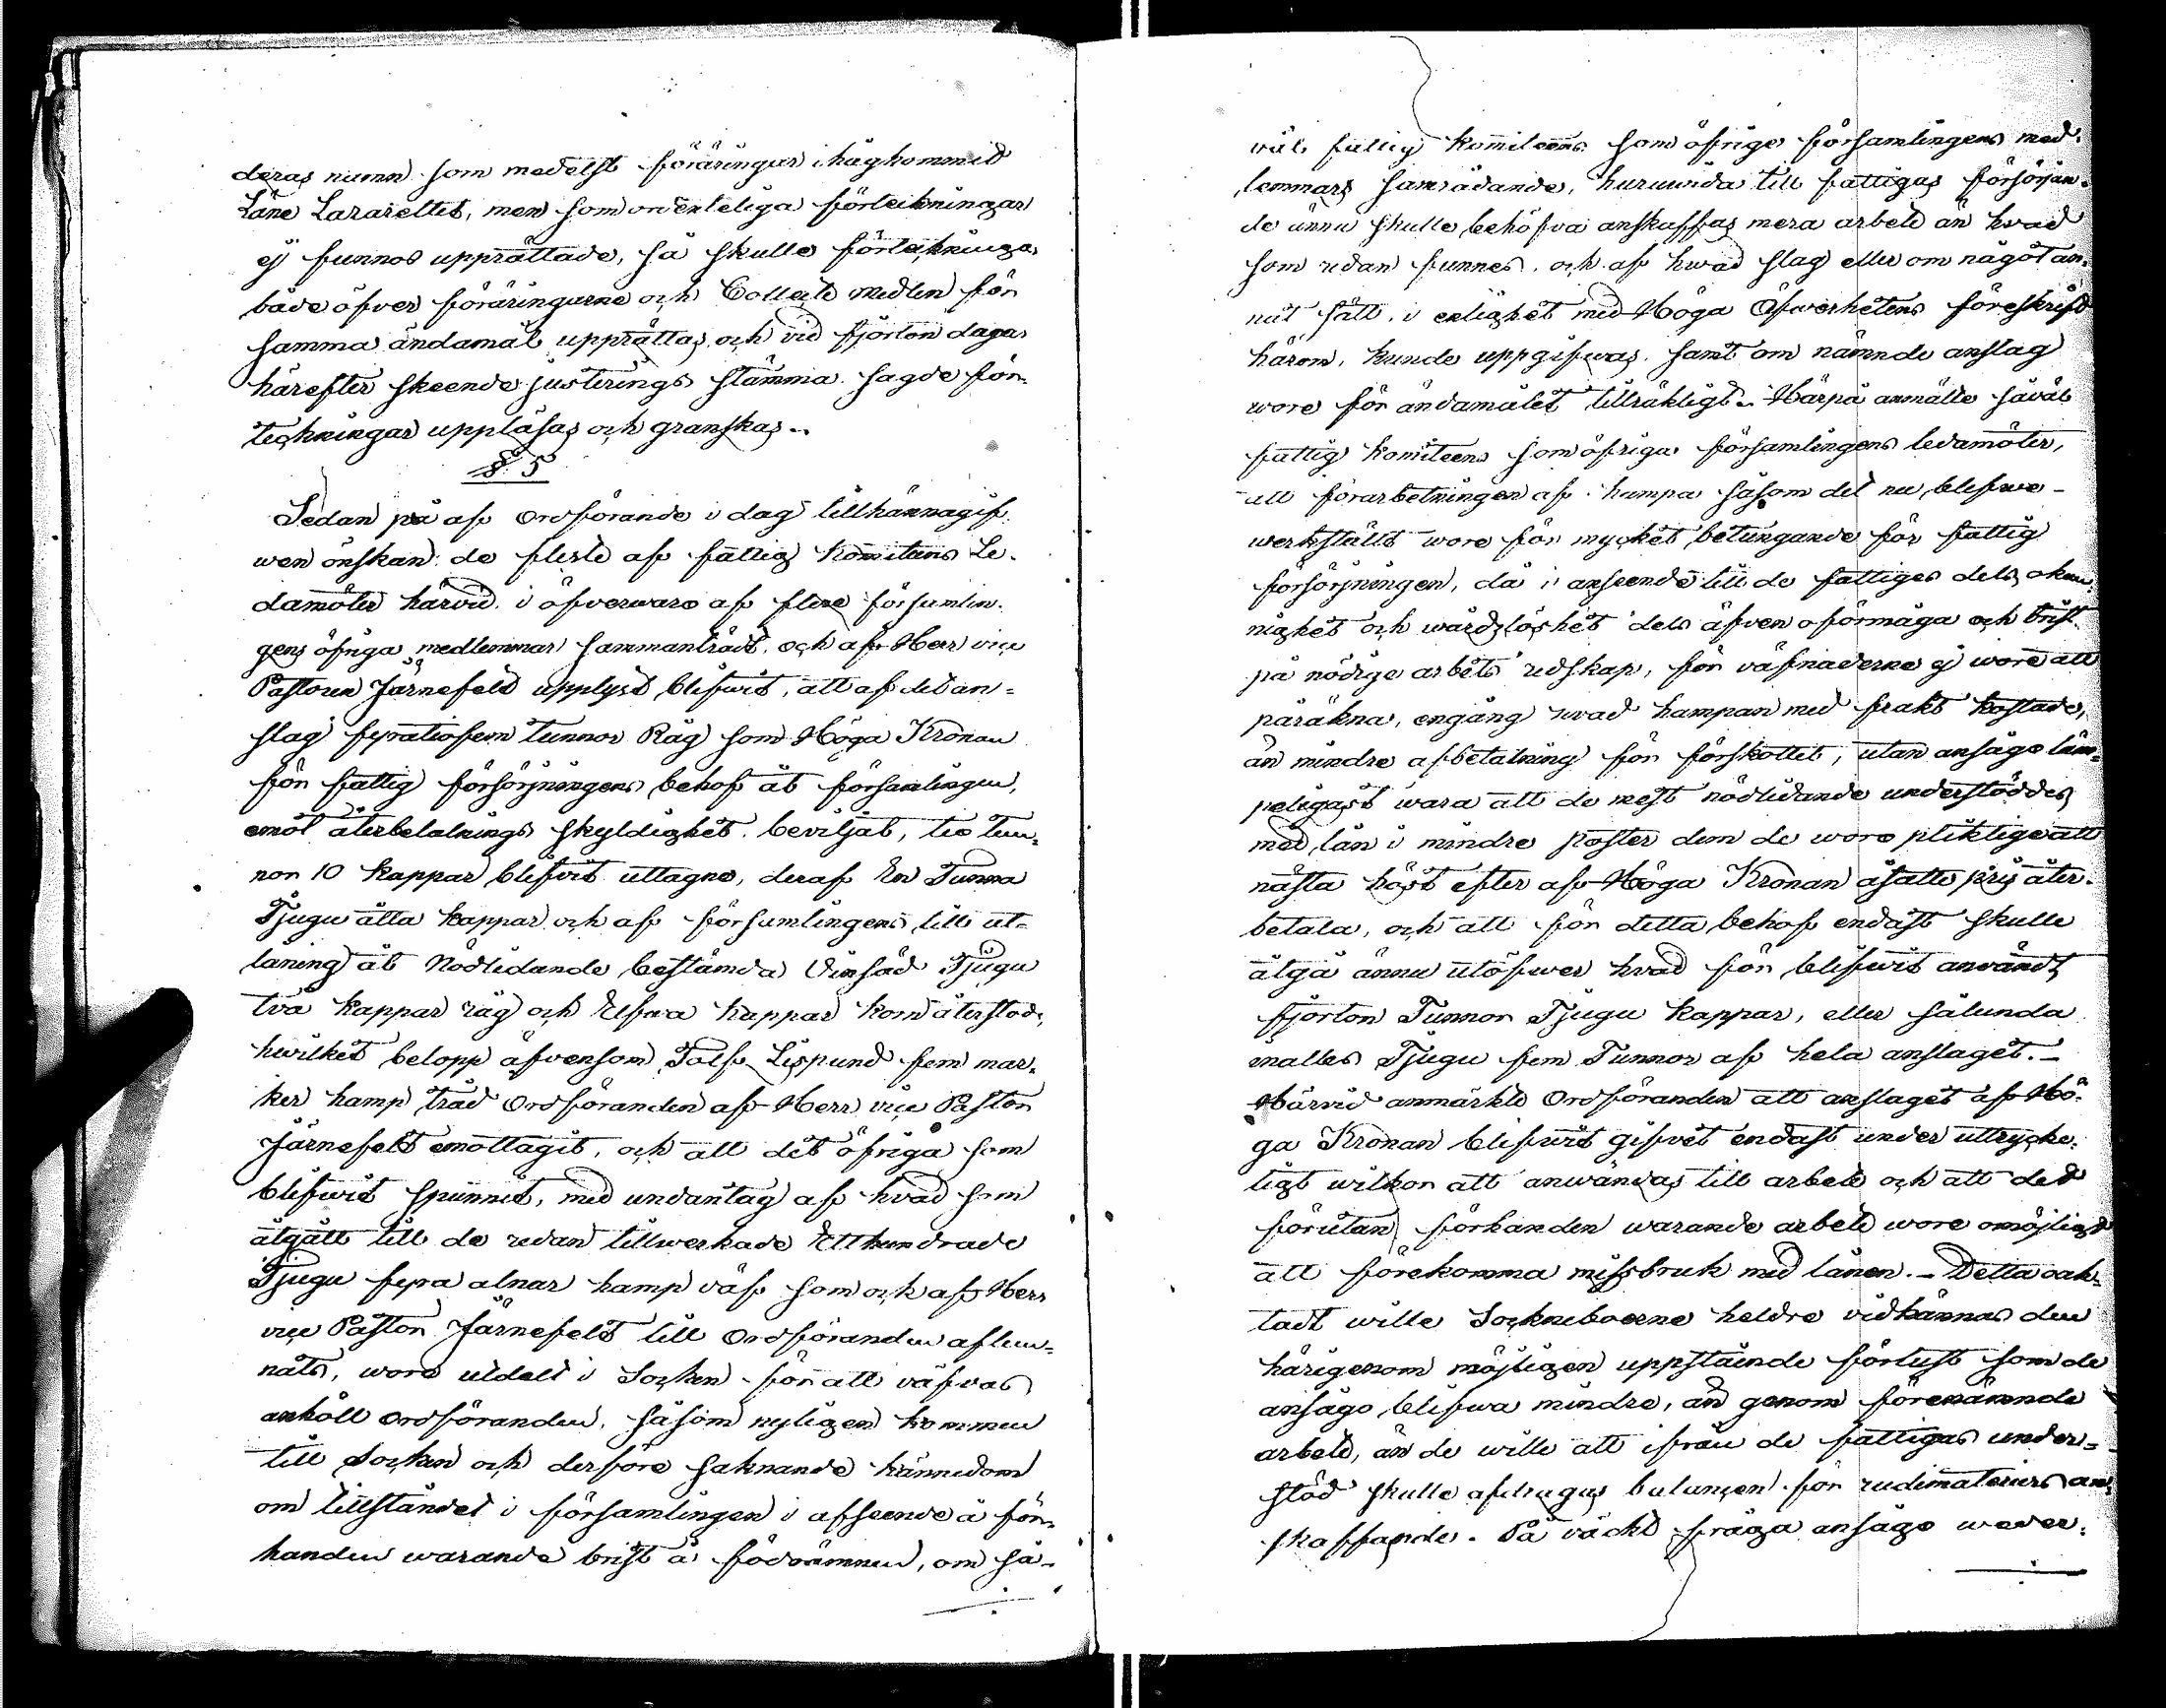 deras namn som medelst föräringar ihågkommit
Läne Lazarettet, men som ordenteliga förteikningar
ej funnos upprättade, så skulle förteikningar
både öfver föräringarne och Collecte medlen för
samma ändamål upprättas och vid fjorton dagar
härefter skeende justerings stämma sagde för-
teckningar uppläsas och granskas..
§ 5
Sedan på af Ordförande i dag tillhännagif-
wen önskan de fleste af fattig Komiteens Le-
damöter härvid i öfverwaro af flere försumlin-
gens öfriga medlemmar sammanträdt, och af Herr vice
Pastoren Järnefelt upplyst blifwit, att af det an=
slag fyratiofem tunnor Råg som Höga Kronan
för fattig försörjningens behof åt församlingen,
emot återbetalnings skyldighet beviljat, tio tun=
nor 10 kappar blifwit uttagne, deraf En Tunna
Tjugu åtta kappar och af församlingens till ut=
låning åt Nödlidande bestämda Utsäd Tjugu
två kappar råg och Elfwa kappar korn återstod,
hwilket belopp äfvensom Tolf Lispund fem mar-
ker hamp tråd Ordföranden af Herr vice Pastor
Järnefelt emottagit, och att det öfriga som
blifwit spunnit, med undantag af hvad som
åtgått till de redan tillwerkade Etthundrade
Tjugu fyra alnar hamp väf som och af Herr
vice Pastor Järnefelt till Ordföranden aflem=
nats, wore utdelt i Socken för att väfvas
anhöll Ordföranden, såsom nyligen kommen
till Socken och derföre saknande kännedom
om tillståndet i församlingen i afseende å för-
handen warande brist å födoämnen, om så-
väl fattig komiteens som öfrige församlingens med-
lemmars samrådande, huruwida till fattigas försörjan-
de ännu skulle behöfva anskaffas mera arbete än hvad
som redan funnes, och af hwad slag eller om något an-
nat sätt, i enlighet med Höga Öfwerhetens föreskrift
härom, kunde uppgifwas, samt om nämnde anslag
wore för ändamålet tillräkligt.. Härpå anmälte såväl
fattig komiteens som öfriga församlingens ledamöter,
att förarbetningen af hampa såsom det nu blifwe
werkstäldt wore för mycket betungande för fattig
försörjningen, då i anseende till de fattiges dels okun-
nighet och wårdslöshet dels äfven oförmåga och brist
på nödige arbets redskap, för väfnaderne ej wore att
påräkna, engång hvad hampan med frakt kostade,
än mindre afbetalning för förskottet, utan ansågo läm-
peligast wara att de mest nödlidande understöddes
med lån i mindre poster dem de wore pliktige att
nästa höst efter af Höga Kronan åsatte pris åter-
betala, och att för detta behof endast skulle
åtgå ännu utöfwer hvad för blifwit användt
fjorton Tunnor Tjugu kappar, eller sålunda
inalles Tjugu fem Tunnor af hela anslaget.-
Härvid anmärkte Ordföranden att anslaget af Hö-
ga Kronan blifwit gifvet endast under uttrycke-
ligt wilkor att anwändas till arbete och att det
förutan förhanden warande arbete wore omöjligt
att förekomma missbruk med lånen.- Detta oak-
tadt wille Sockneboerne heldre vidkännas den
härigenom möjligen uppstående förlust som de
ansågo blifwa mindre, än genom förenämnde
arbete, än de wille att ifrån de fattigas under=
stöd skulle afdragas balansen för rudimateriers an-
skaffande. På väckt fråga ansågo weder-